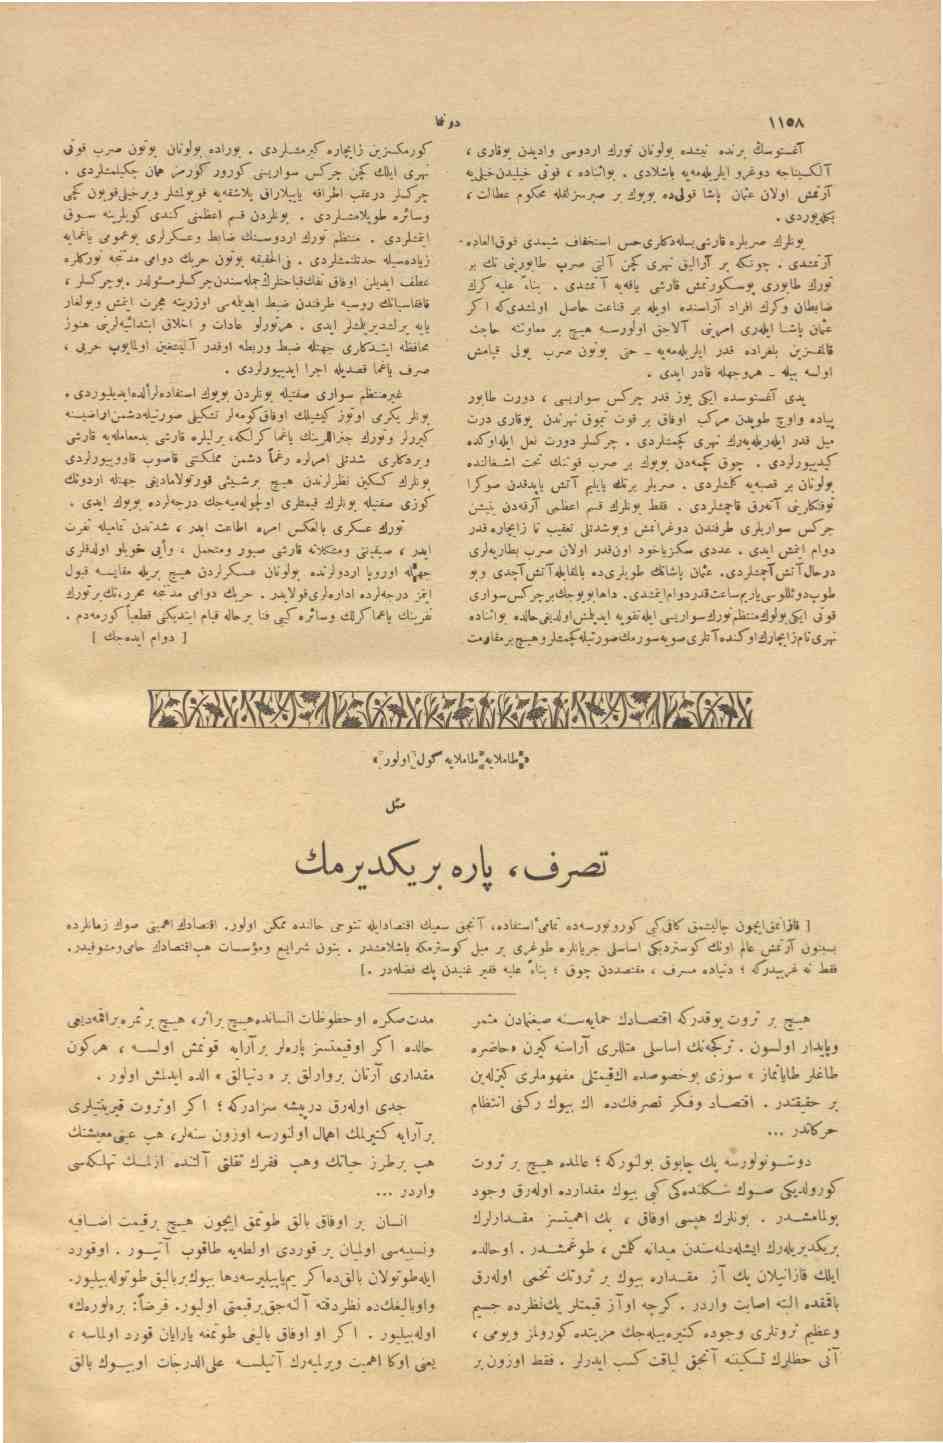 ١١٥٨
دونما
آغستوسك برنده نیشده بولونان تورك اردوسی وادیدن یوقاری ،
آلكسیناجه دوغرو ایلریله‌مه‌یه باشلادی . بواثناده ، قوتی خیلیدن‌خیلی‌یه
آرتمش اولان عثمان پاشا قولی‌ده بویوك بر صبرسزلقله محكوم عطالت ،
بكله‌یوردی .
بونلرك صربلره قارشی بسله‌دكلری حس استخفاف شیمدی فوق‌العاده
آرتمشدی . چونكه بر آرالیق نهری كچن آلتی صرب طابورینی تك بر
تورك طابوری پوسكورتمش قارشی یاقه‌یه آتمشدی . بناءً علیه كرك
ضابطان وكرك افراد آراسنده اویله بر قناعت حاصل اولمشدی‌كه اكر
عثمان پاشا ایلری امرینی آلاجق اولورسه هیچ بر معاونته حاجت
قالمقسزین بلغراده قدر ایلریله‌مه‌یه ـ حتی بوتون صرب یولی قپامش
اولسه بیله ـ هروجهله قادر ایدی .
یدی آغستوسده ایكی یوز قدر چركس سواریسی ، دورت طابور
پیاده واوچ طوپدن مركب اوفاق بر قوت تیموق نهرندن یوقاری درت
میل قدر ایلریله‌یه‌رك نهری كچمشلردی . چركسلر دورت نعل ایله‌اوكده
كیدییورلردی . چوق كچمه‌دن بویوك بر صرب قوتنك تحت اشغالنده
بولونان بر قصبه‌یه كلمشلردی . صربلر برتك یایلیم آتش یاپدقدن صوكرا
توفنكلرینی آته‌رق قاچمشلردی . فقط بونلرك قسم اعظمی آرقه‌دن یتیشن
چركس سواریلری طرفندن دوغرانمش وبوشدتلی تعقیب تا زایچاره قدر
دوام ایتمش ایدی . عددی سكزیاخود اون‌قدر اولان صرب بطاریه‌لری
درحال‌آتش‌آچمشلردی. عثمان پاشانك طوپلری‌ده بالمقابله‌آتش‌آچدی وبو
طوپ‌دوئللوسی‌یاریم‌ساعت‌قدردوام‌ایتمشدی. داهابویوجك‌برچركس‌سواری
قوتی ایكی‌بولوك‌منتظم‌تورك‌سواریسی ایله‌تقویه ایدیلمش‌اولدیغی‌حالده بواثناده
نهری‌تام‌زایچارك‌اوكنده‌آتلری‌صویه‌سورمك‌صورتیله‌كچمشلروهیچ‌برمقاومت
كورمكسزین زایچاره كیرمشلردی . بوراده بولونان بوتون صرب قوتی
نهری ایلك كچن چركس سواریسنی كورور كورمز همان چكیلمشلردی .
چركسلر درعقب اطرافه یاییلارق یلاشقه‌یه قویولمشلر وبرخیلی‌قویون كچی
وسائره طوپلامشلردی . بونلردن قسم اعظمنی كندی كویلرینه سوق
ایتمشلردی . منتظم تورك اردوسنك ضابط وعسكرلری بوعمومی یاغمایه
زیاده‌سیله حدتلنمشلردی . فی‌الحقیقه بوتون حربك دوامی مدتنجه توركلره
عطف ایدیلن اوفاق تفك‌قباحتلرك‌جمله‌سندن‌چركسلرمسئولدر .بوچركسلر ،
قافقاسیانك روسیه طرفندن ضبط ایدیلمه‌سی اوزرینه هجرت ایتمش وبولغار
یایه یرلشدیریلمشلر ایدی . هرتورلو عادات و اخلاق ابتدائیه‌لرینی هنوز
محافظه ایتدكلری جهتله ضبط وربطه اوقدر آلیشقین اولمایوب حربی ،
صرف یاغما قصدیله اجرا ایدییورلردی .
غیرمنتظم سواری صفتیله بونلردن بویوك استفاده‌لرألده‌ایدیلیوردی .
بونلر یكرمی اوتوز كیشیلك اوفاق‌كومه‌لر تشكیلی صورتیله‌دشمن‌اراضیسنه
كیررلر وتورك جنراللرینك یاغما كرلكه، یرلیلره قارشی بدمعامله‌یه قارشی
ویردكلری شدتلی امرلره رغماً دشمن مملكتنی قاصوب قاووریورلردی
بونلرك كسكین نظرلرندن هیچ برشیئی قورتولامادیغی جهتله اردونك
كوزی صفتیله بونلرك قیمتلری اولچوله‌میه‌جك درجه‌لرده بویوك ایدی .
تورك عسكری بالعكس امره اطاعت ایدر ، شدتدن تمامیله نفرت
ایدر ، صیقینتی ومشكلاته قارشی صبور ومتحمل ، وأیی خویلو اولدقلری
جهتله اوروپا اردولرنده بولونان عسكرلردن هیچ بریله مقایسه قبول
ایتمز درجه‌لرده اداره‌لری‌قولایدر. حربك دوامی مدتنجه محررتك‌برتورك
نفرینك یاغماكرلك وسائره كبی فنا برحاله قیام ایتدیكنی قطعیاً كورمه‌دم .
[ دوام ایده‌جك ]
«طاملایه طاملایه كول اولور»
مثل
تصرف، پاره بریكدیرمك
[ قازانمق‌ایچون چالیشمق كافی‌كبی كورونورسه‌ده تمامیٔ‌استفاده، آنجق سعیك اقتصادایله تتوجی حالنده ممكن اولور. اقتصادك‌اهمیتی صوك زمانلرده
بسبتون آرتمش عالم اونك كوستردیكی اساسلی جریانلره طوغری بر میل كوسترمكه باشلامشدر . بتون شرایع ومؤسسات هپ‌اقتصادك حامی‌ومشوقیدر.
فقط نه غریبدركه ؛ دنیاده مسرف ، مقتصددن چوق ؛ بناءً علیه فقیر غنیدن پك فضله‌در .]
هیچ بر ثروت یوقدركه اقتصادك حمایه‌سنه صیغنمادن مثمر
وپایدار اولسون . تركجه‌نك اساسلی مثللری آراسنه كیرن «حاضره
طاغلر طایانماز » سوزی بوخصوصده اك‌قیمتلی مفهوملری كیزله‌ین
بر حقیقتدر . اقتصاد وفكر تصرفك‌ده اك بیوك ركنی انتظام
حركاتدر ...
دوشونولورسه پك چابوق بولنوركه ؛ عالمده هیچ بر ثروت
كورولدیكی صوك شكلنده‌كی كبی بیوك مقدارده اوله‌رق وجود
بولمامشدر . بونلرك هپسی اوفاق ، پك اهمیتسز مقدارلرك
بریكدیریله‌رك ایشله‌دلمه‌سندن میدانه كلمش ، طوغمشدر . اوحالده
ایلك قازانیلان پك آز مقداره بیوك بر ثروتك تخمی اوله‌رق
باقمقده البته اصابت واردر . كرچه اوآز قیمتلر پك‌نظرده جسیم
وعظیم ثروتلری وجوده كتیره‌بیله‌جك مزیتده كورولمز وبومی ،
آنی حظلرك تسكیننه آنجق لیاقت كسب ایدرلر . فقط اوزون بر
مدت‌صكره اوحظوظات انسانده‌هیچ براثر، هیچ برثمره‌براقمه‌دیمی
حالده اكر اوقیمتسز پاره‌لر برآرایه قونمش اولسه ، هركون
مقداری آرتان بروارلق بر « دنیالق » الده ایدلمش اولور .
جدی اوله‌رق درپیشه سزادركه ؛ اكر اوثروت قیرینتیلری
برآرایه كتیرلمك اهمال اولنورسه اوزون سنه‌لر، هپ عینی‌معیشتك
هپ برطرز حیاتك وهپ فقرك ثقلتی آلتنده ازلمك تهلكه‌سی
واردر ...
انسان بر اوفاق بالق طوتمق ایچون هیچ برقیمت اضافیه
ونسبیه‌سی اولمیان بر قوردی اولطه‌یه طاقوب آتییور . اوقورد
ایله‌طوتولان بالق‌ده‌اكر یم‌یاپیلیرسه‌دها بیوك‌بربالق طوتوله‌بیلیور.
واوبالیغك‌ده نظردقته آلنه‌جق‌برقیمتی اولیور. فرضا: بره‌لوره‌ك»
اوله‌بیلیور . اكر او اوفاق بالیغی طوتمغه یارایان قورد اولماسه ،
یعنی اوكا اهمیت ویرلمیه‌رك آتیلسه علی‌الدرجات اوبیوك بالق